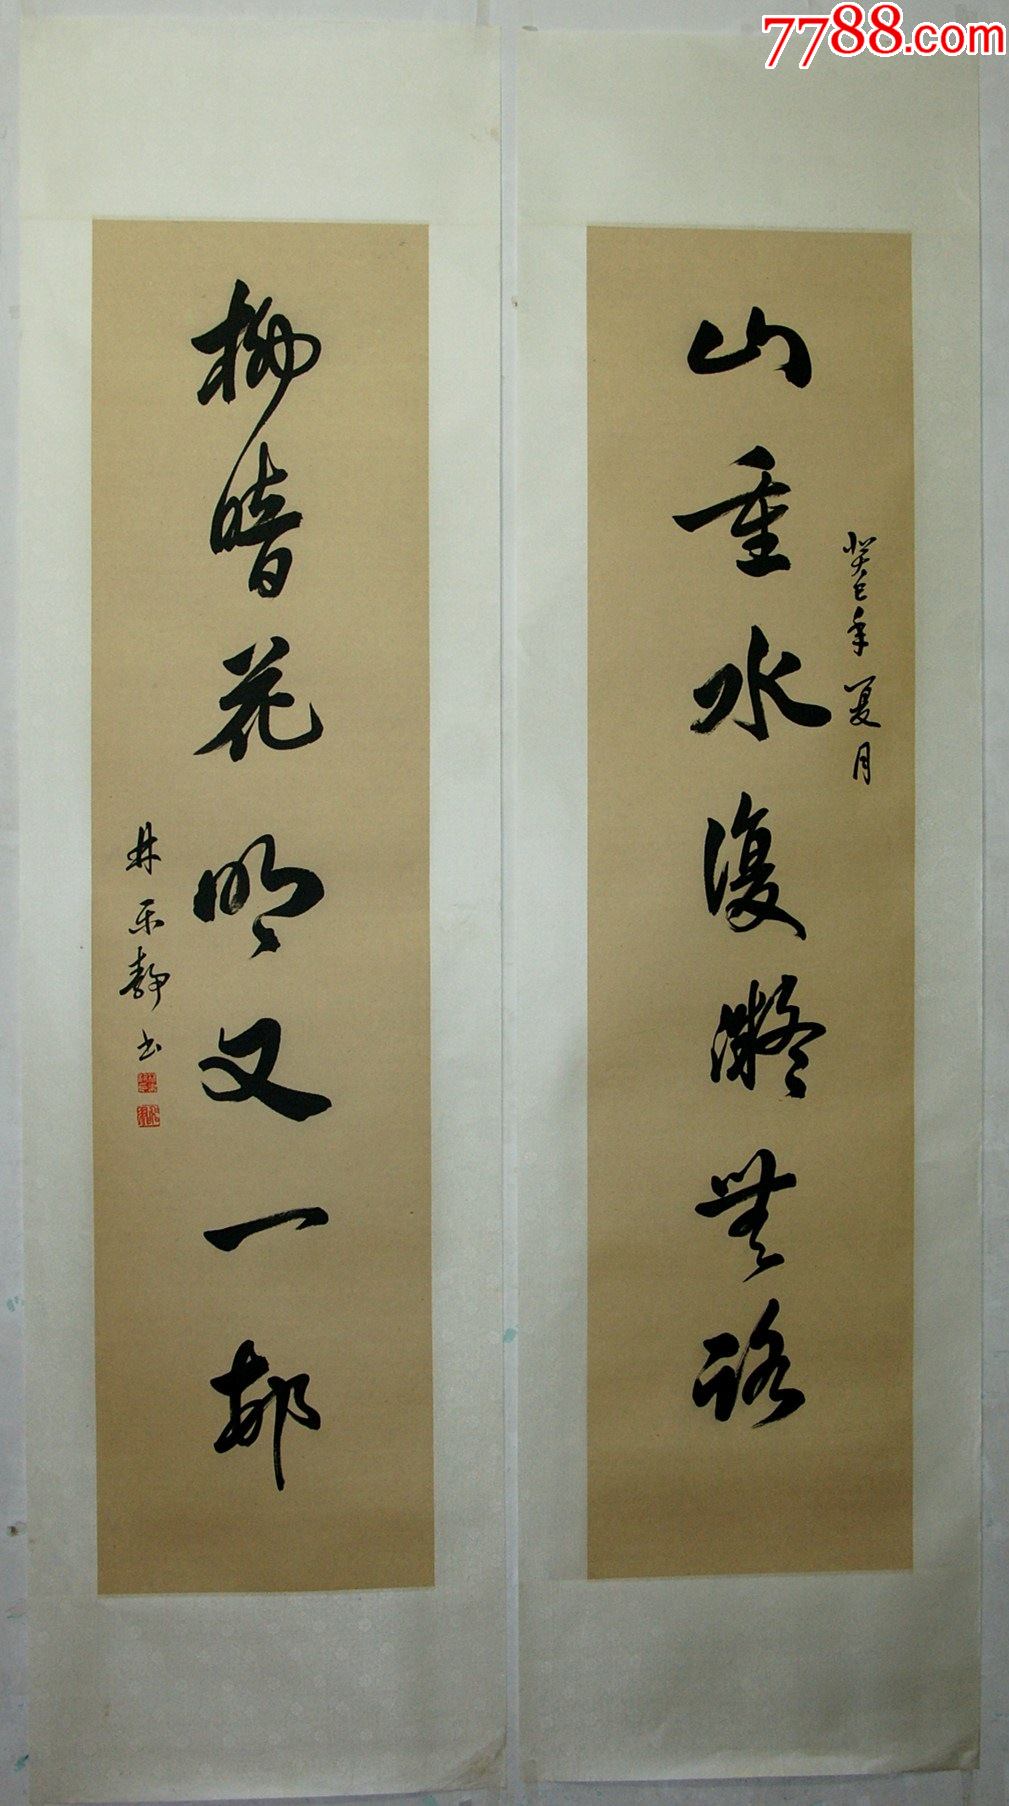 7788.com
山重水復疑無路
癸巳年夏月
柳暗花明又一邨
林乐静书